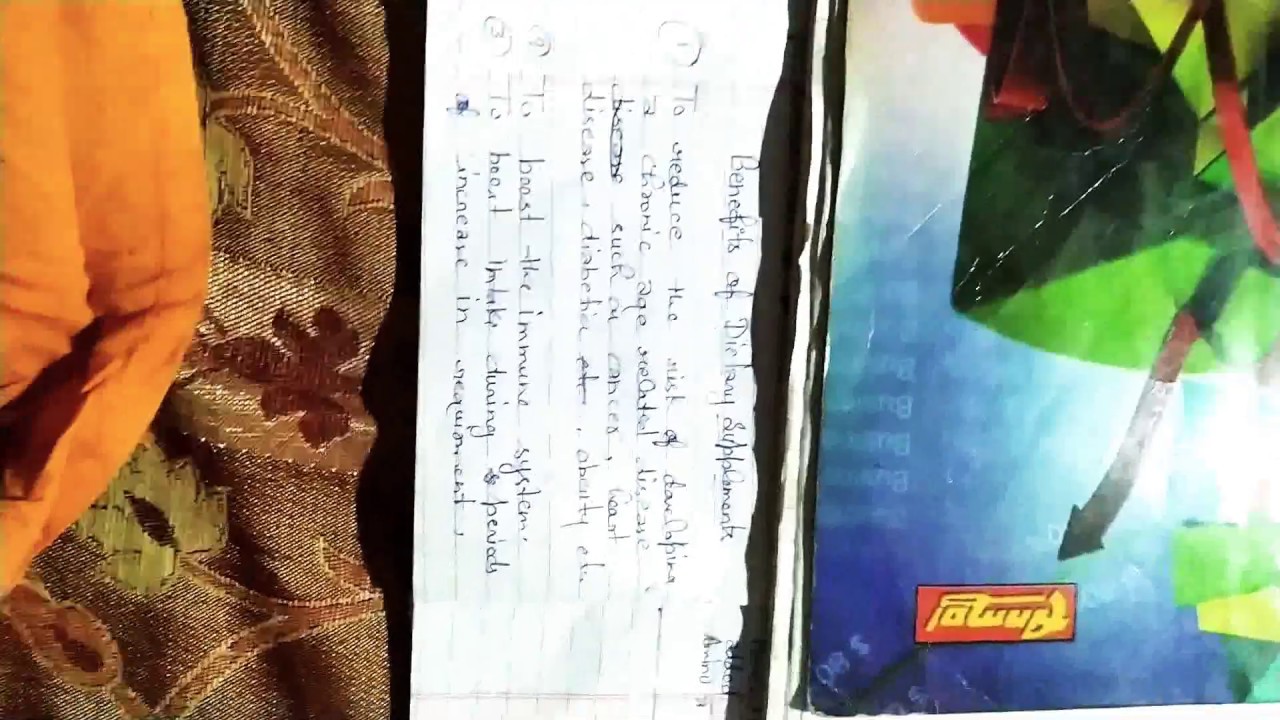 Benefits of Dietary Supplements
① To reduce the risk of developing
a chronic age related disease
disease such as cancer, heart
disease, diabetic etc, obesity etc
② To boost the immune system.
③ To boost intake during s periods
of increase in requirement.
added
Amino